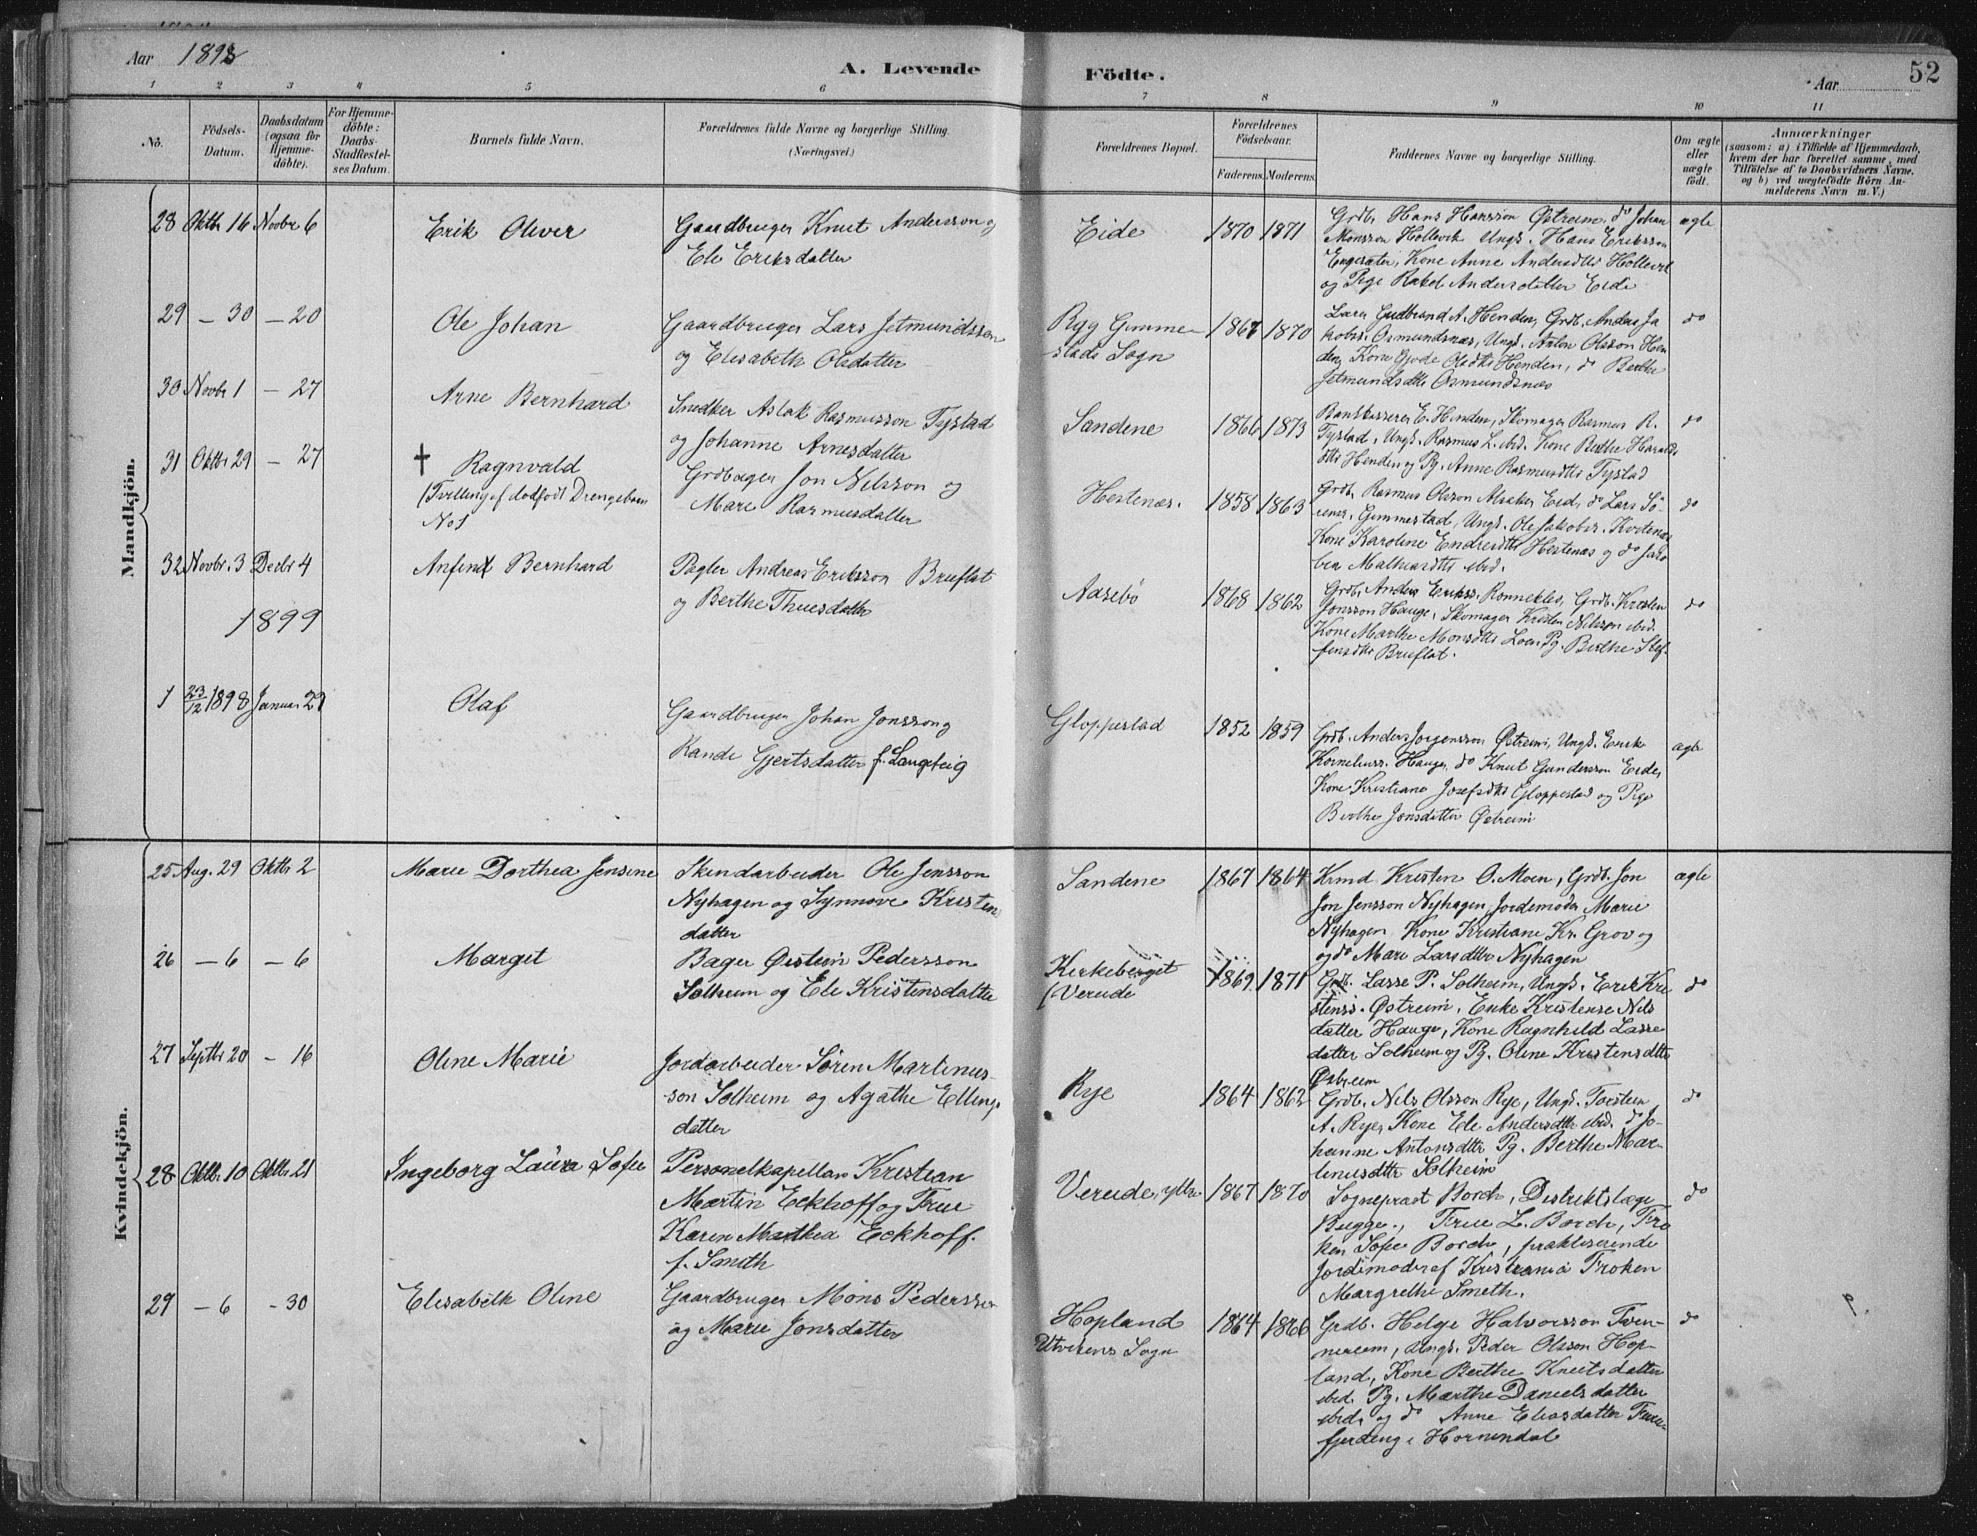 Aar 1898
A. Levende
Födte.
Aar
52
1 2 3 4 5 6 7 8 9 10 11
No.
Födsels-
Datum.
Daabsdatum
(ogsaa for
Hjemme-
döbte).
For Hjemme-
döbte:
Daabs-
Stadfæstel-
ses Datum.
Barnets fulde Navn.
Forældrenes fulde Navne og borgerlige Stilling.
(Næringsvei.)
Forældrenes Bopæl.
Forældrenes
Födselsaar.
Faderens. Moderens.
Faddernes Navne og borgerlige Stilling.
Om ægte
eller
uægte
født.
Anmærkninger
(saasom: a) i Tilfælde af Hjemmedaab,
hvem der har forrettet samme, med
Tilföielse af to Daabsvidners Navne,
og b) ved uægtefödte Börn An-
melderens Navn m. V.)
Mandkjön.
28 Oktbr 16 Novbr 6
Erik Oliver
Gaardbruger Knut Andersson og
Eli Eriksdatter
Eide
1870 1871
Grdb. Hans Hansson Østreim, do Johan
Monsson Hollevik Ungk. Hans Eriksson
Engesæter, Kone Anne Andersdtr Hollevik
og Pige Rakel Andersdatter Eide
ægte
29 — 30 — 20
Ole Johan
Gaardbruger Lars Jetmundsson
og Elisabeth Olsdatter
Ryg Gimme-
stads Sogn
1867 1870
Lærer Gudbrand A. Henden, Grdb. Anders Ja
kobs. Osmundsnæs, Ungk. Anton Olsson Hen
den, Kone Gjøde Olsdtr Henden, do Berthe
Jetmundsdtr Osmundsnæs
do
30 Novbr 1 — 27
Arne Bernhard
Snedker Aslak Rasmusson Tystad
og Johanne Arnesdatter
Sandene
1866 1873
Bankkasserer E. Henden, Skomager Rasmus R.
Tystad, Ungk. Rasmus L. ibid. Kone Berthe Haralds
dtr Henden og Pg. Anne Rasmusdtr Tystad
do
31 Oktbr 29 — 27
† Ragnvald
(Tvilling af dødfødt Drengebarn
No 1
Grdbruger Jon Nilsson og
Mari Rasmusdatter
Hestenæs.
1858 1863
Grdb. Rasmus Olsson Eide, do Lars Sö-
rens. Gimmestad, Ungk. Ole Jakobs. Hestenæs
Kone Karoline Endresdtr Hestenæs og do Jako
bea Mathiasdtr ibid.
do
32 Novbr. 3 Decbr 4
Anfind Bernhard
Pagter Andreas Eriksson Bruflat
og Berthe Thuesdatter
Aasebö
1868 1862
Grdb. Anders Eriks. Ronnekleiv, Grdb. Kristen
Jonsson Hauge, Skomager Kristen Nilsson ibid.
Kone Marthe Monsdtr Loen, Pg. Berthe Stef-
fensdtr Bruflat.
do
1899
1 23/12 1898 Januar 29
Olaf
Gaardbruger Johan Jonsson og
Rande Gjertsdatter f. Langeteig
Gloppestad
1852 1859
Grdb. Anders Jørgensson Østreim, Ungk. Enok
Korneliuss. Hauge, do Knut Gundersson Eide,
Kone Kristiane Josefsdtr Gloppestad og Pige
Berthe Jonsdatter Østreim
ægte
Kvindekjön.
25 Aug. 29 Oktbr 2
Marie Dorthea Jensine
Skindarbeider Ole Jensson
Nyhagen og Synnøve Kristens
datter
Sandene
1867 1864
Krmd Kristen O. Moen, Grdb. Jon
Jon Jensson Nyhagen, Jordemoder Marie
Nyhagen, Kone Kristiane Kr. Grov og
og do Mari Larsdtr Nyhagen
ægte
26 — 6 — 6
Margit
Bager Østein Pedersson
Solheim og Eli Kristensdatter
Kirkeberget
(Vereide
1869 1871
Grdb. Lasse P. Solheim, Ungk. Erik Kri
stenss. Østreim, Enke Kristense Nils
datter Hauge, Kone Ragnhild Lasse
datter Solheim og Pg. Oline Kristensdtr
Østreim
do
27 Septbr 20 — 16
Oline Marie
Jordarbeider Sören Martinus-
son Solheim og Agathe Ellings
datter
Rye
1864 1862
Grdb. Nils Olsson Rye, Ungk. Torstein
A. Rye, Kone Eli Andersdtr ibid. do Jo-
hanne Antonsdtr Pg. Berthe Mar-
tinusdtr Solheim
do
28 Oktbr. 10 Oktbr 21
Ingeborg Laura Sofie
Personelkapellan Kristian
Martin Eckhoff og Frue
Karen Marthea Eckhoff
f. Smith
Vereide, ytre
1867 1870
Sogneprest Borch, Distriktslæge
Bugge, Frue L. Borch, Frø
ken Sofie Borch, praktiserende
Jordemoder af Kristiania Frøken
Margrethe Smith.
do
29 — 6 — 30
Elisabeth Oline
Gaardbruger Mons Pedersson
og Marie Jonsdatter
Hopland
Utvikens Sogn
1864 1866
Grdb. Helge Halvorsson Tven-
nereim, Ungk. Peder Olsson Hop-
land, Kone Berthe Knutsdatter
ibid. Pg. Marthe Danielsdatter
ibid. og do Anne Eliasdatter
i Hornindal
do